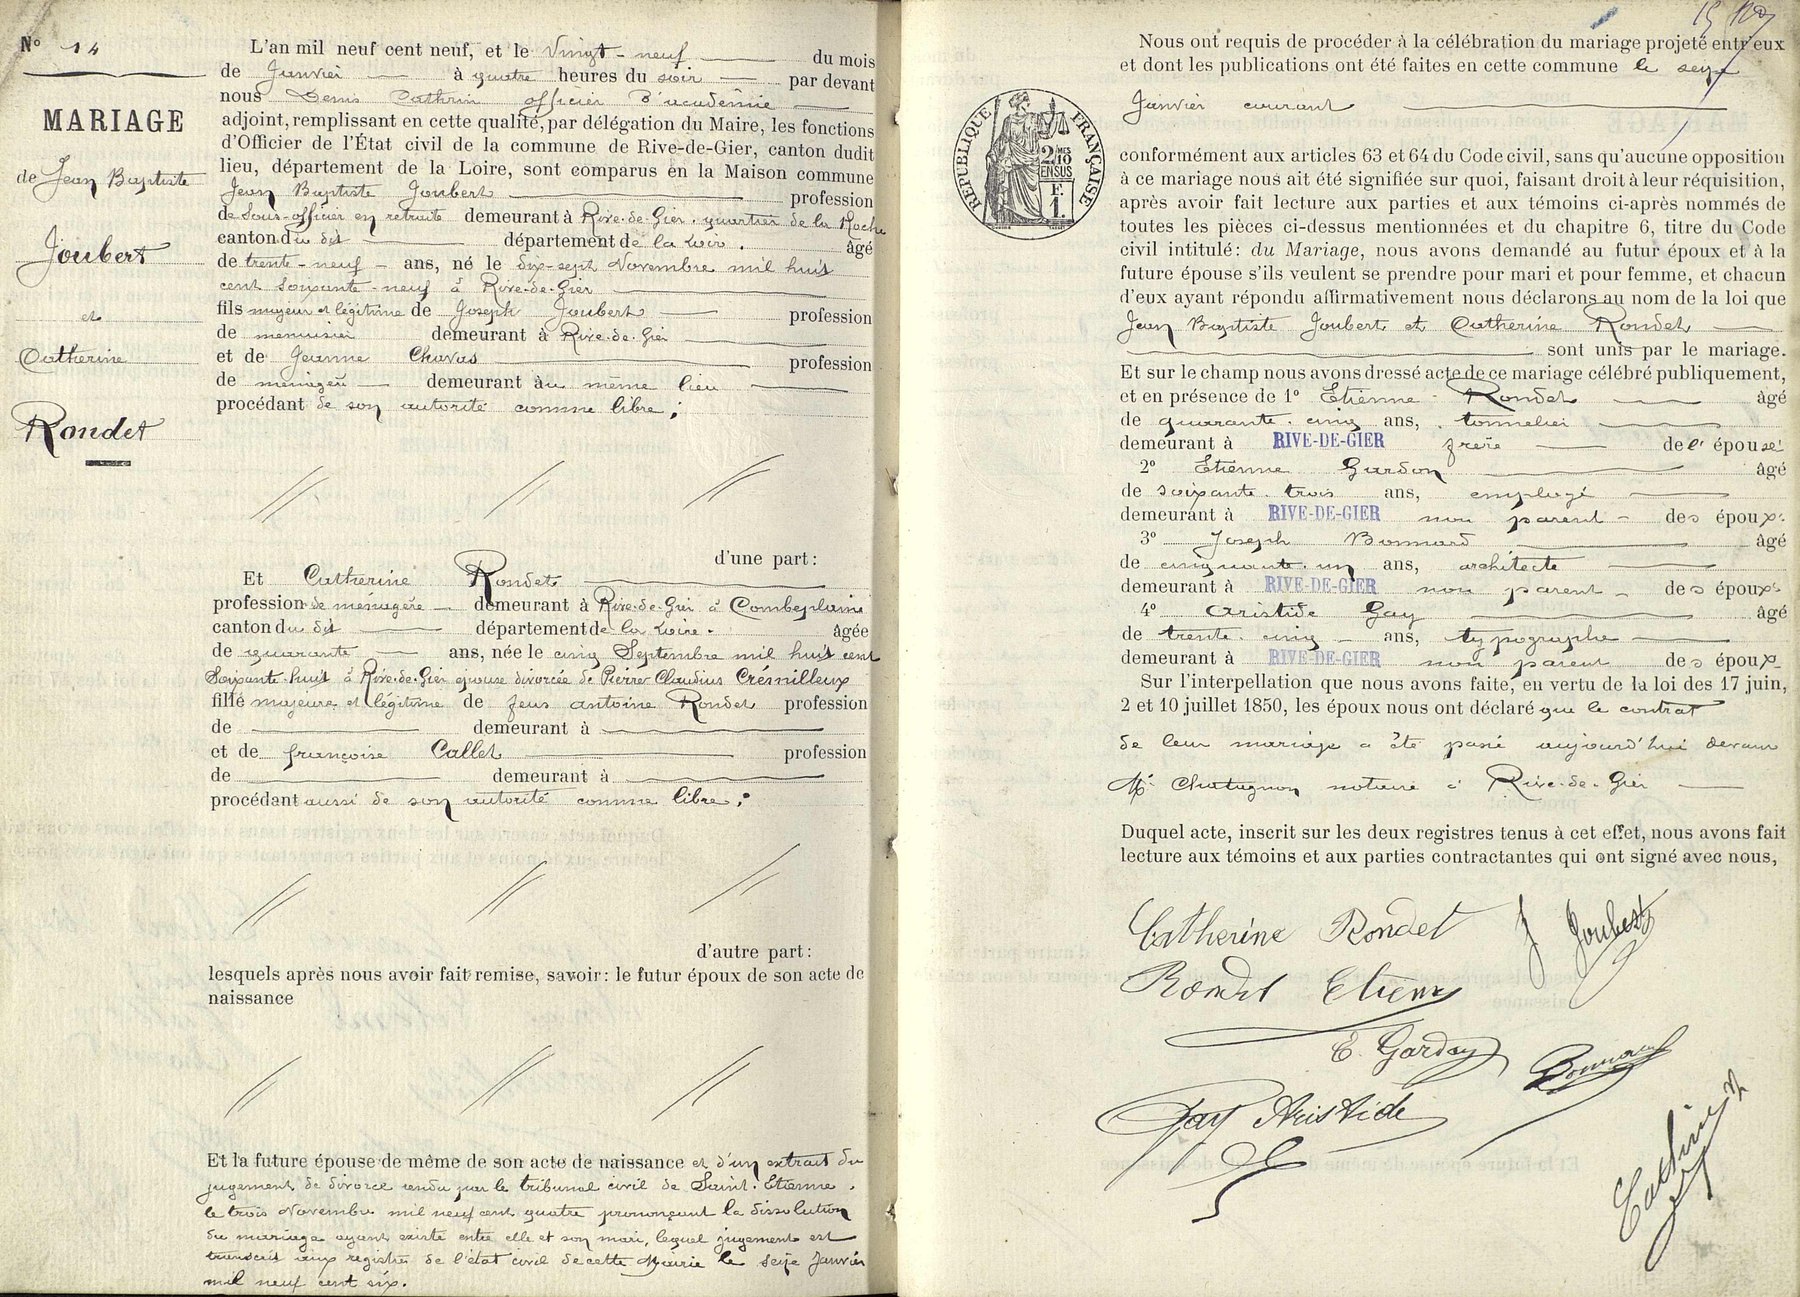 N° 14
MARIAGE
de Jean Baptiste
Joubert
et
Catherine
Rondet
L'an mil neuf cent neuf, et le Vingt-neuf du mois
de Janvier à quatre heures du soir par devant
nous Denis Cathrin officier d'académie
adjoint, remplissant en cette qualité, par délégation du Maire, les fonctions
d'Officier de l'État civil de la commune de Rive-de-Gier, canton dudit
lieu, département de la Loire, sont comparus en la Maison commune
Jean Baptiste Joubert profession
de Sous-officier en retraite demeurant à Rive-de-Gier, quartier de la Roche
canton du dit département de la Loire. âgé
de trente-neuf ans, né le dix-sept Novembre mil huit
cent soixante-neuf à Rive-de-Gier
fils majeur et légitime de Joseph Joubert profession
de menuisier demeurant à Rive-de-Gier
et de Jeanne Chavas profession
de ménagère demeurant au même lieu
procédant de son autorité comme libre;
d'une part:
Et Catherine Rondet
profession de ménagère demeurant à Rive-de-Gier à Combeplaine
canton du dit département de la Loire. âgée
de quarante ans, née le cinq Septembre mil huit cent
Soixante-huit à Rive-de-Gier épouse divorcée de Pierre Claudius Crésnilleux
fille majeure et légitime de feus antoine Rondet profession
de demeurant à
et de françoise Callet profession
de demeurant à
procédant aussi de son autorité comme libre;
d'autre part:
lesquels après nous avoir fait remise, savoir: le futur époux de son acte de
naissance
Et la future épouse de même de son acte de naissance et d'un extrait du
jugement de divorce rendu par le tribunal civil de Saint-Etienne,
le trois Novembre mil neuf cent quatre prononçant la dissolution
du mariage ayant existé entre elle et son mari, lequel jugement est
transcrit aux registres de l'état civil de cette Mairie le seize Janvier
mil neuf cent six.
Nous ont requis de procéder à la célébration du mariage projeté entr'eux
et dont les publications ont été faites en cette commune le seize
Janvier courant
RÉPUBLIQUE FRANÇAISE
2/10
EN SUS
F.
1.
conformément aux articles 63 et 64 du Code civil, sans qu'aucune opposition
à ce mariage nous ait été signifiée sur quoi, faisant droit à leur réquisition,
après avoir fait lecture aux parties et aux témoins ci-après nommés de
toutes les pièces ci-dessus mentionnées et du chapitre 6, titre du Code
civil intitulé: du Mariage, nous avons demandé au futur époux et à la
future épouse s'ils veulent se prendre pour mari et pour femme, et chacun
d'eux ayant répondu affirmativement nous déclarons au nom de la loi que
Jean Baptiste Joubert et Catherine Rondet
sont unis par le mariage.
Et sur le champ nous avons dressé acte de ce mariage célébré publiquement,
et en présence de 1° Etienne Rondet âgé
de quarante-cinq ans, tonnelier
demeurant à RIVE-DE-GIER frère de l'épouse
2° Etienne Gardon âgé
de soixante-trois ans, employé
demeurant à RIVE-DE-GIER non parent des époux
3° Joseph Bonnard âgé
de cinquante-un ans, architecte
demeurant à RIVE-DE-GIER non parent des époux
4° Aristide Gay âgé
de trente-cinq ans, typographe
demeurant à RIVE-DE-GIER non parent des époux
Sur l'interpellation que nous avons faite, en vertu de la loi des 17 juin,
2 et 10 juillet 1850, les époux nous ont déclaré que le contrat
de leur mariage a été passé aujourd'hui devant
Me Chatagnon notaire à Rive-de-Gier
Duquel acte, inscrit sur les deux registres tenus à cet effet, nous avons fait
lecture aux témoins et aux parties contractantes qui ont signé avec nous,
Catherine Rondet J Joubert
Rondet Etienne
E. Gardon Bonnard
Gay Aristide
Cathrin